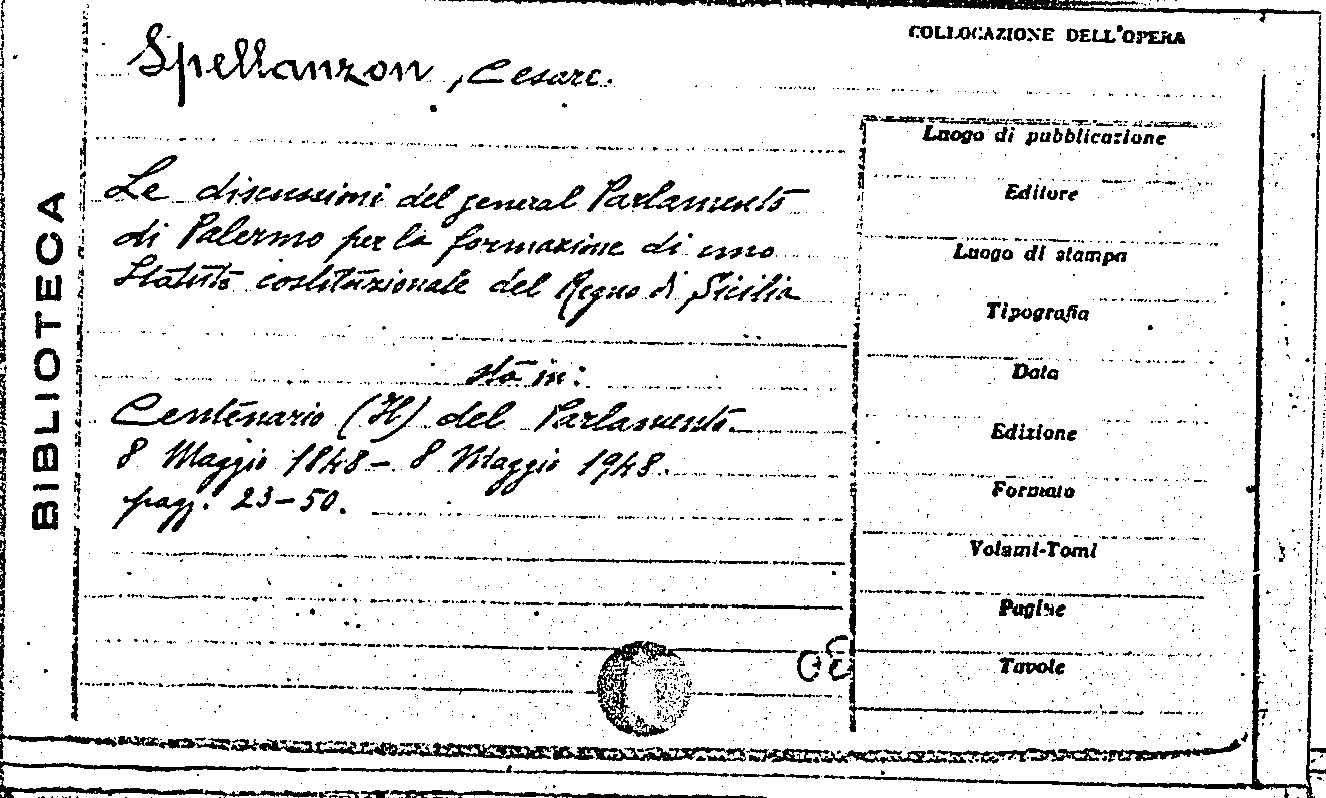 COLLOCAZIONE DELL'OPERA
Spellanzon, Cesare.
BIBLIOTECA
Le discussioni del general Parlamento
di Palermo per la formazione di uno
Statuto costituzionale del Regno di Sicilia
sta in:
Centenario (Il) del Parlamento.
8 Maggio 1848 - 8 Maggio 1948.
pagg. 23-50.
Luogo di pubblicazione
Editore
Luogo di stampa
Tipografia
Data
Edizione
Formato
Volumi-Tomi
Pagine
Tavole